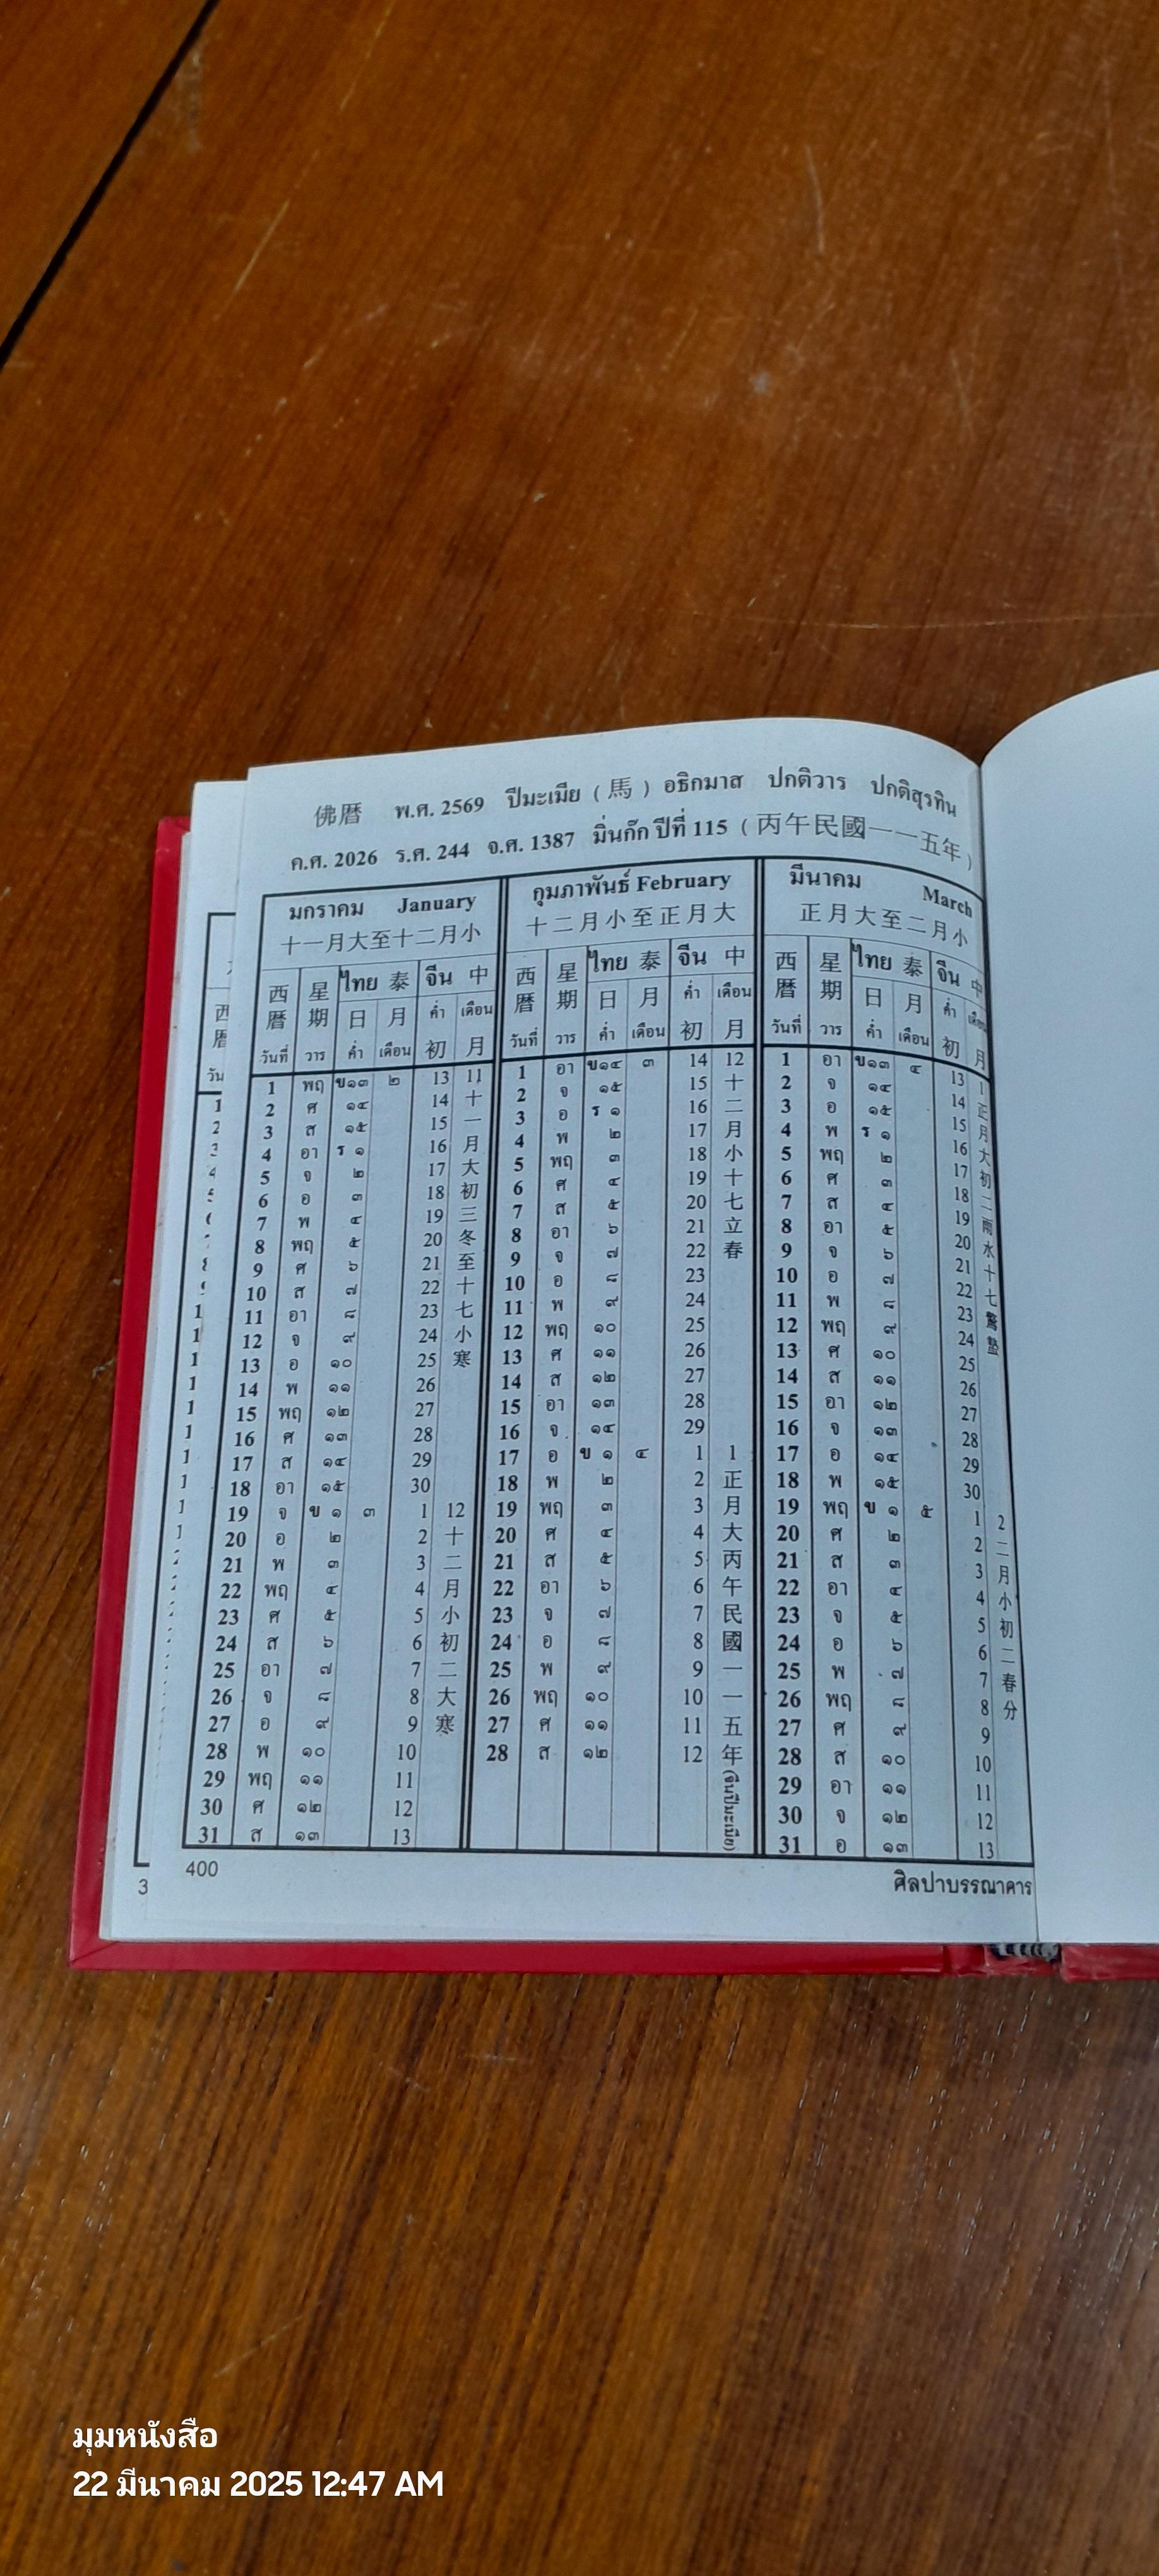 佛曆 พ.ศ. 2569 ปีมะเมีย ( 馬 ) อธิกมาส ปกติวาร ปกติสุรทิน
ค.ศ. 2026 ร.ศ. 244 จ.ศ. 1387 มิ่นก๊ก ปีที่ 115 ( 丙午民國一一五年 )
มกราคม January กุมภาพันธ์ February มีนาคม March
十一月大至十二月小 十二月小至正月大 正月大至二月小
西曆 星期 ไทย 泰 จีน 中 西曆 星期 ไทย 泰 จีน 中 西曆 星期 ไทย 泰 จีน 中
日 月 ค่ำ เดือน 日 月 ค่ำ เดือน 日 月 ค่ำ เดือน
วันที่ วาร ค่ำ เดือน 初 月 วันที่ วาร ค่ำ เดือน 初 月 วันที่ วาร ค่ำ เดือน 初 月
1 พฤ ข๑๓ ๒ 13 11 1 อา ข๑๔ ๓ 14 12 1 อา ข๑๓ ๔ 13 1
2 ศ ๑๔ 14 十 2 จ ๑๕ 15 十 2 จ ๑๔ 14 正
3 ส ๑๕ 15 一 3 อ ร ๑ 16 二 3 อ ๑๕ 15 月
4 อา ร ๑ 16 月 4 พ ๒ 17 月 4 พ ร ๑ 16 大
5 จ ๒ 17 大 5 พฤ ๓ 18 小 5 พฤ ๒ 17 初
6 อ ๓ 18 初 6 ศ ๔ 19 十 6 ศ ๓ 18 二
7 พ ๔ 19 三 7 ส ๕ 20 七 7 ส ๔ 19 雨
8 พฤ ๕ 20 冬 8 อา ๖ 21 立 8 อา ๕ 20 水
9 ศ ๖ 21 至 9 จ ๗ 22 春 9 จ ๖ 21 十
10 ส ๗ 22 十 10 อ ๘ 23 10 อ ๗ 22 七
11 อา ๘ 23 七 11 พ ๙ 24 11 พ ๘ 23 驚
12 จ ๙ 24 小 12 พฤ ๑๐ 25 12 พฤ ๙ 24 蟄
13 อ ๑๐ 25 寒 13 ศ ๑๑ 26 13 ศ ๑๐ 25
14 พ ๑๑ 26 14 ส ๑๒ 27 14 ส ๑๑ 26
15 พฤ ๑๒ 27 15 อา ๑๓ 28 15 อา ๑๒ 27
16 ศ ๑๓ 28 16 จ ๑๔ 29 16 จ ๑๓ 28
17 ส ๑๔ 29 17 อ ข ๑ ๔ 1 1 17 อ ๑๔ 29
18 อา ๑๕ 30 18 พ ๒ 2 正 18 พ ๑๕ 30
19 จ ข ๑ ๓ 1 12 19 พฤ ๓ 3 月 19 พฤ ข ๑ ๕ 1 2
20 อ ๒ 2 十 20 ศ ๔ 4 大 20 ศ ๒ 2 二
21 พ ๓ 3 二 21 ส ๕ 5 丙 21 ส ๓ 3 月
22 พฤ ๔ 4 月 22 อา ๖ 6 午 22 อา ๔ 4 小
23 ศ ๕ 5 小 23 จ ๗ 7 民 23 จ ๕ 5 初
24 ส ๖ 6 初 24 อ ๘ 8 國 24 อ ๖ 6 二
25 อา ๗ 7 二 25 พ ๙ 9 一 25 พ ๗ 7 春
26 จ ๘ 8 大 26 พฤ ๑๐ 10 一 26 พฤ ๘ 8 分
27 อ ๙ 9 寒 27 ศ ๑๑ 11 五 27 ศ ๙ 9
28 พ ๑๐ 10 28 ส ๑๒ 12 年 28 ส ๑๐ 10
29 พฤ ๑๑ 11 29 อา ๑๑ 11
30 ศ ๑๒ 12 30 จ ๑๒ 12
31 ส ๑๓ 13 31 อ ๑๓ 13
400 ศิลปาบรรณาคาร
มุมหนังสือ
22 มีนาคม 2025 12:47 AM